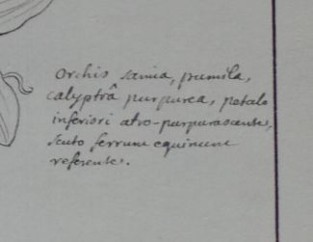 Orchis sania, pumila,
calyptrâ purpurea, petalo
inferiori atro-purpurascente,
scuto ferrum equinum
referente.